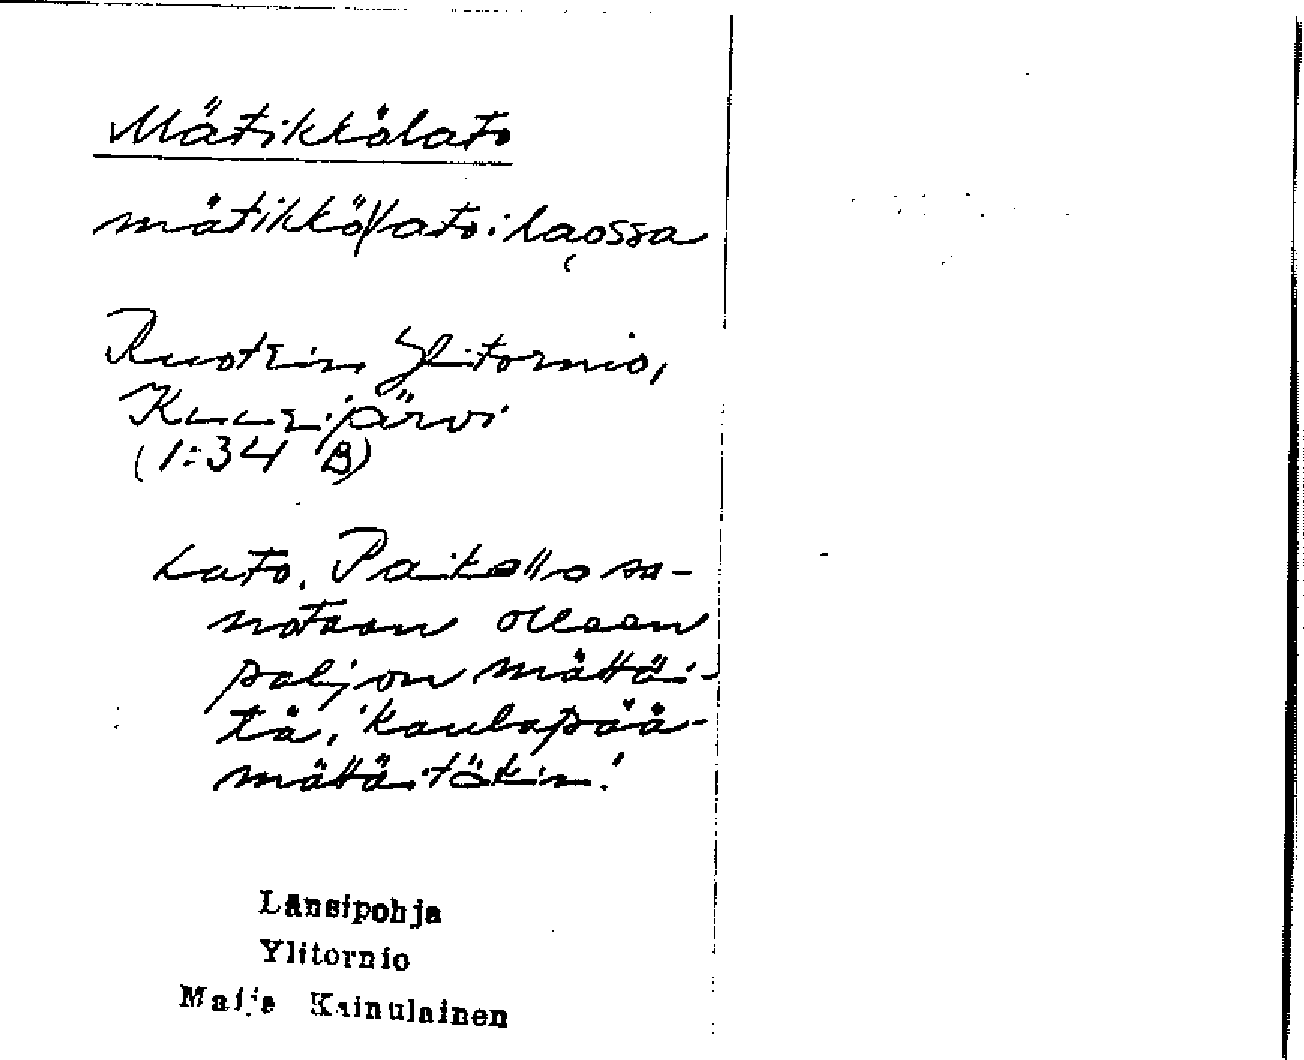 Mätikkölato
mätikkö|lato: laossa
Ruotsin Ylitornio,
Kuusijärvi
(1:34 B)
Lato. Paikalla sa-
notaan olleen
paljon mättäi-
tä, 'kaulapää-
mättäitäkin.'
Länsipohja
Ylitornio
Maija Kainulainen